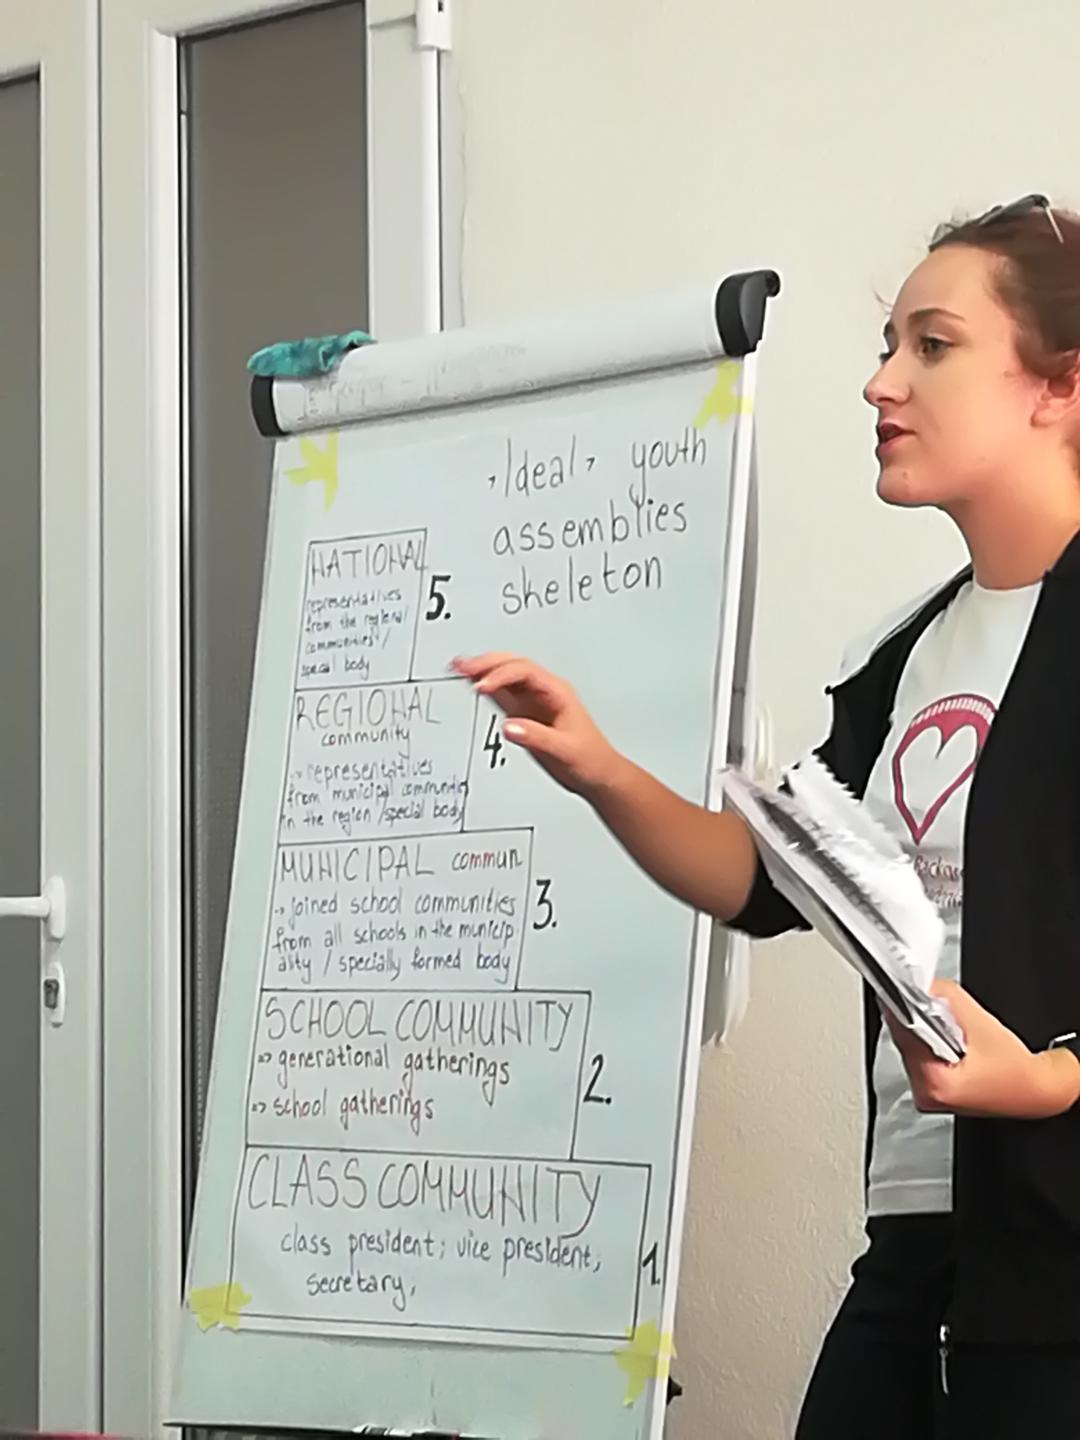 ,Ideal, youth
assemblies
skeleton
NATIONAL
representatives
from the regional
communities /
special body
5.
REGIONAL
community
-> representatives
from municipal communities
in the region /special body
4.
MUNICIPAL commun
-> joined school communities
from all schools in the municip
ality / specially formed body
3.
SCHOOL COMMUNITY
=> generational gatherings
=> school gatherings
2.
CLASS COMMUNITY
class president; vice president;
secretary,
1.